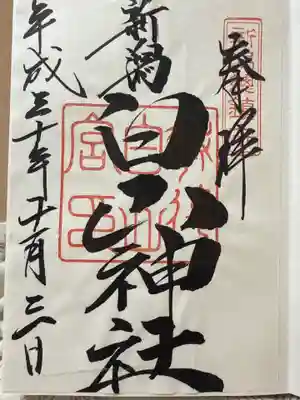 奉拝
新潟
白山神社
平成三十年十一月三日